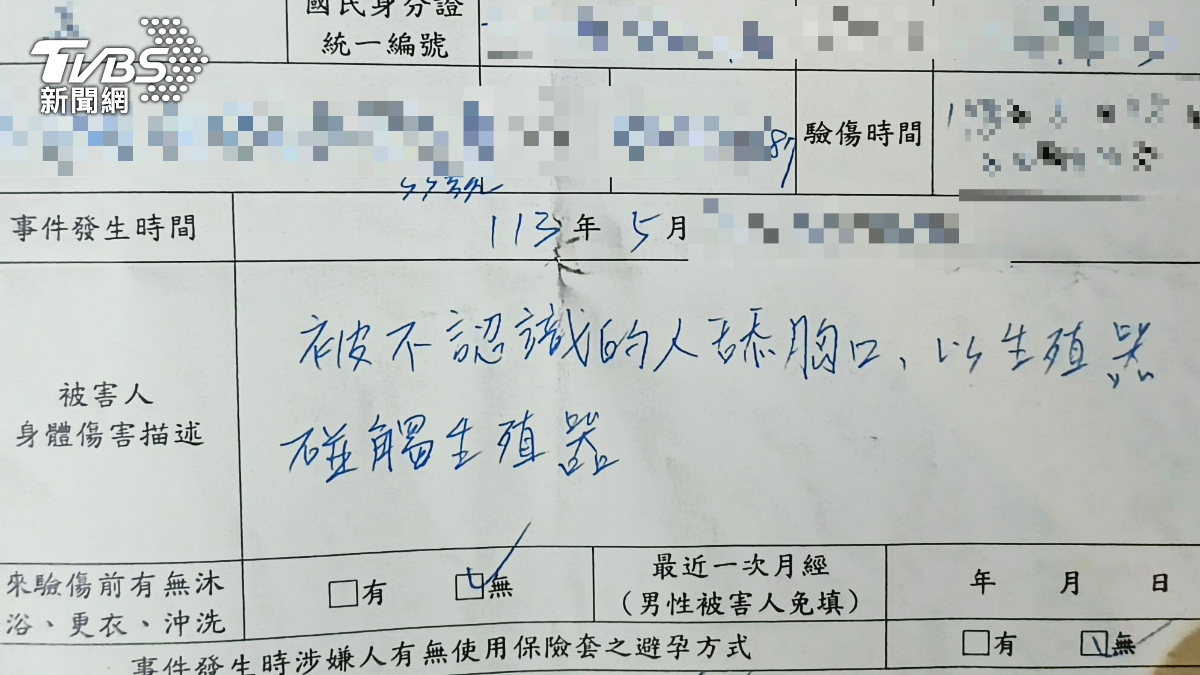 國民身分證
統一編號
TVBS
新聞網
87
驗傷時間
事件發生時間
113年 5月
被不認識的人舔胸口、以生殖器
碰觸生殖器
被害人
身體傷害描述
來驗傷前有無沐
浴、更衣、沖洗
□有 ☑無
最近一次月經
(男性被害人免填)
年 月 日
事件發生時涉嫌人有無使用保險套之避孕方式
□有 ☑無